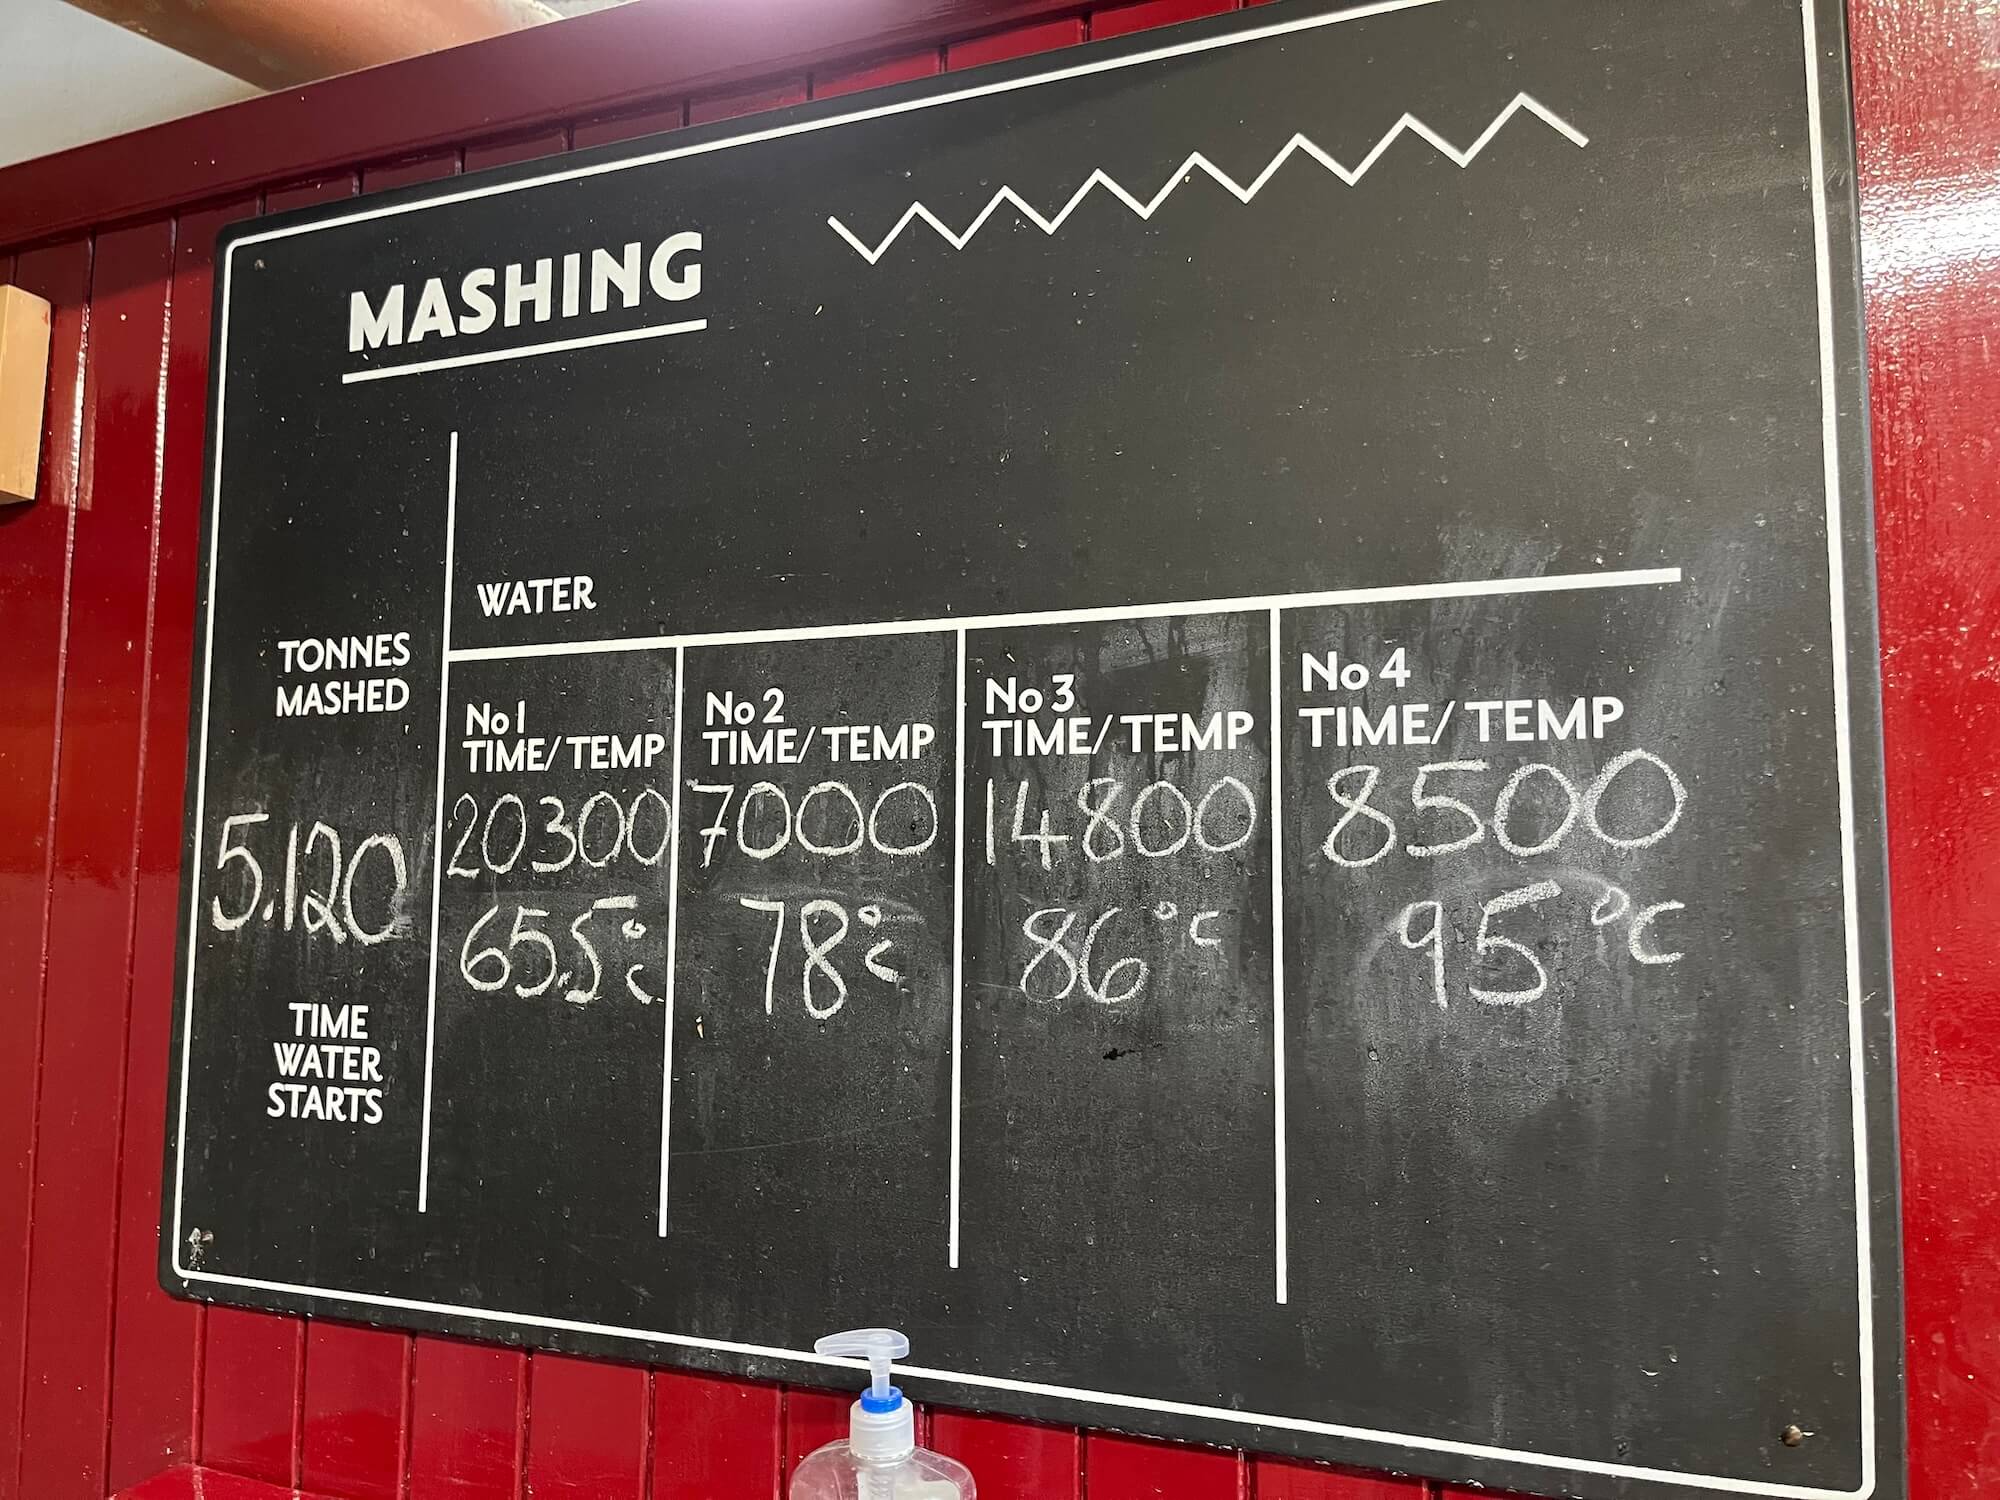 MASHING
WATER
TONNES
MASHED
No 1
TIME/TEMP
No 2
TIME/TEMP
No 3
TIME/TEMP
No 4
TIME/TEMP
5.120
20300
7000
14800
8500
65.5°C
78°C
86°C
95°C
TIME
WATER
STARTS